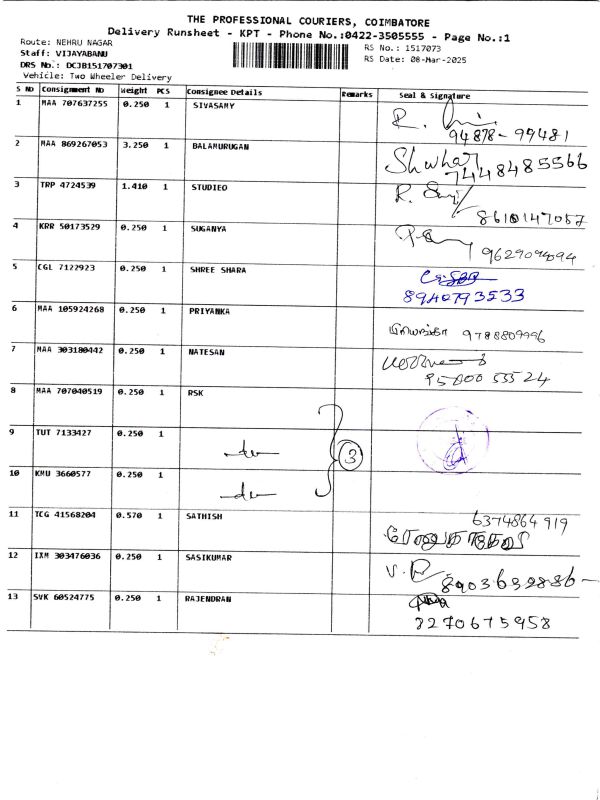 THE PROFESSIONAL COURIERS, COIMBATORE
Delivery Runsheet - KPT - Phone No.:0422-3505555 - Page No.:1
Route: NEHRU NAGAR
Staff: VIJAYABANU
DRS No.: DCJB151707301
Vehicle: Two Wheeler Delivery
RS No.: 1517073
RS Date: 08-Mar-2025
S No Consignment No Weight PCS Consignee Details Remarks Seal & Signature
1 MAA 707637255 0.250 1 SIVASAMY
R.
94878-99481
2 MAA 869267053 3.250 1 BALAMURUGAN
7448485566
3 TRP 4724539 1.410 1 STUDIEO
R.
8610147057
4 KRR 50173529 0.250 1 SUGANYA
9629094094
5 CGL 7122923 0.250 1 SHREE SHARA
8940793533
6 MAA 105924268 0.250 1 PRIYANKA
பிரியங்கா 9788809996
7 MAA 303180442 0.250 1 NATESAN
95000 55524
8 MAA 707040519 0.250 1 RSK
9 TUT 7133427 0.250 1 -do-
3
10 KMU 3660577 0.250 1 -do-
11 TCG 41568204 0.570 1 SATHISH
6374864919
12 IXM 303476036 0.250 1 SASIKUMAR
8903632886
13 SVK 60524775 0.250 1 RAJENDRAN
8270675958